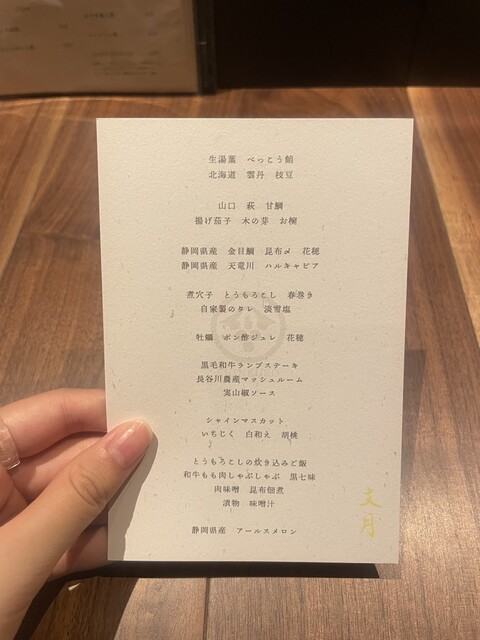 生湯葉　べっこう餡
北海道　雲丹　枝豆
山口　萩　甘鯛
揚げ茄子　木の芽　お椀
静岡県産　金目鯛　昆布〆　花穂
静岡県産　天竜川　ハルキャビア
煮穴子　とうもろこし　春巻き
自家製のタレ　淡雪塩
牡蠣　ポン酢ジュレ　花穂
黒毛和牛ランプステーキ
長谷川農産マッシュルーム
実山椒ソース
シャインマスカット
いちじく　白和え　胡桃
とうもろこしの炊き込みご飯
和牛もも肉しゃぶしゃぶ　黒七味
肉味噌　昆布佃煮
漬物　味噌汁
静岡県産　アールスメロン
文月